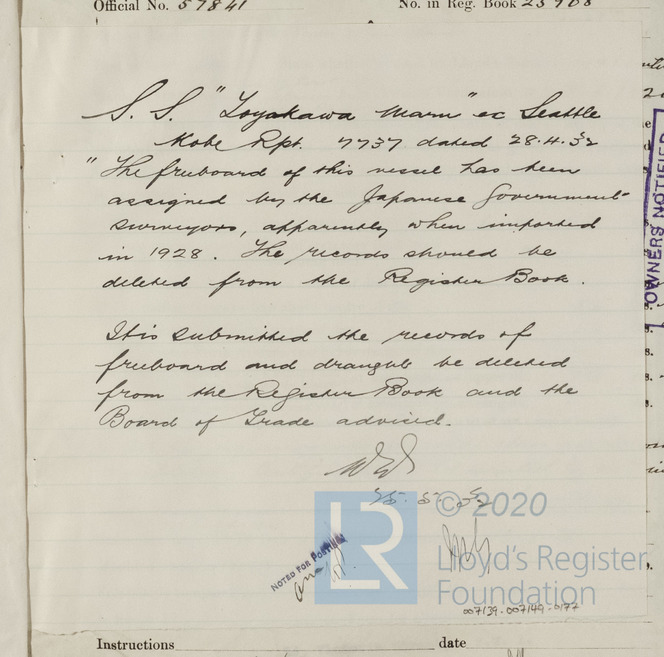 Official No. 57841 No. in Reg. Book 23908
S. S. "Toyakawa Maru" ex Seattle
Kobe Rpt. 7737 dated 28.4.32
"The freeboard of this vessel has been
assigned by the Japanese Government
surveyors, apparently when imported
in 1928. The records should be
deleted from the Register Book.
It is submitted the records of
freeboard and draught be deleted
from the Register Book and the
Board of Trade advised.
25.5.32
NOTED FOR POSTING
LR
© 2020
Lloyd's Register
Foundation
007139-007149-0177
Instructions date
OWNERS NOTIFIED